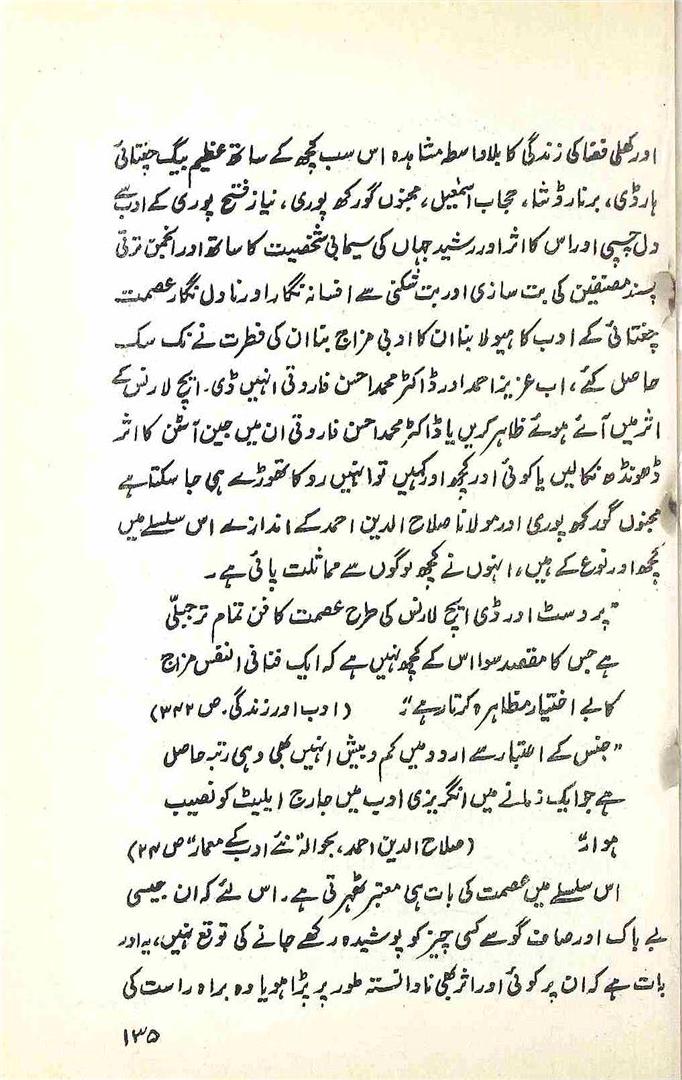 اور کھلی فضا کی زندگی کا بلاواسطہ مشاہدہ اس سب کچھ کے ساتھ عظیم بیگ چغتائی
ہارڈی، برنارڈشا، حجاب اسمٰعیل، مجنوں گورکھ پوری، نیاز فتح پوری کے ادب سے
دل چسپی اور اس کا اثر اور رشید جہاں کی سیمابی شخصیت کا ساتھ اور انجمن ترقی
پسند مصنفین کی بت سازی اور بت شکنی سے افسانہ نگار اور ناول نگار عصمت
چغتائی کے ادب کا ہیولا بنا ان کا ادبی مزاج بنا ان کی فطرت نے نک سک
حاصل کئے، اب عزیز احمد اور ڈاکٹر محمد احسن فاروقی انہیں ڈی۔ ایچ لارنس کے
اثر میں آئے ہوئے ظاہر کریں یا ڈاکٹر محمد احسن فاروقی ان میں جین آسٹن کا اثر
ڈھونڈھ نکالیں یا کوئی اور کچھ اور کہیں تو انہیں روکا تھوڑے ہی جا سکتا ہے
مجنوں گورکھ پوری اور مولانا صلاح الدین احمد کے اندازے اس سلسلے میں
کچھ اور نوع کے ہیں، انہوں نے کچھ لوگوں سے مماثلت پائی ہے۔
"پروسٹ اور ڈی ایچ لارنس کی طرح عصمت کا فن تمام تر جبلّی
ہے جس کا مقصد سوا اس کے کچھ نہیں ہے کہ ایک فنا فی النفس مزاج
کا بے اختیار مظاہرہ کرتا رہے" (ادب اور زندگی۔ ص ۳۴۲)
"جنس کے اعتبار سے اردو میں کم و بیش انہیں بھی وہی رتبہ حاصل
ہے جو ایک زمانے میں انگریزی ادب میں جارج ایلیٹ کو نصیب
ہوا" (صلاح الدین احمد، بحوالہ "نئے ادب کے معمار" ص ۲۴)
اس سلسلے میں عصمت کی بات ہی معتبر ٹھہرتی ہے۔ اس لئے کہ ان جیسی
بے باک اور صاف گو سے کسی چیز کو پوشیدہ رکھے جانے کی توقع نہیں، یہ اور
بات ہے کہ ان پر کوئی اور اثر بھی نادانستہ طور پر پڑا ہو یا وہ براہ راست کی
۱۳۵